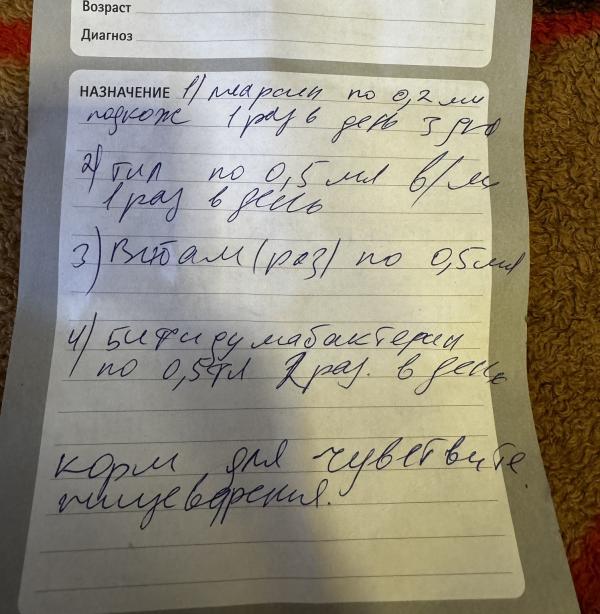 Возраст
Диагноз
НАЗНАЧЕНИЕ 1) по 0,2 мл
подкож 1 раз в день 3 дня
2) тил по 0,5 мл в/м
1 раз в день
3) Витам (раз) по 0,5 мл
4) Бифидумабактерин
по 0,5 2 раз. в день
корм для чувствите
пищеварения.